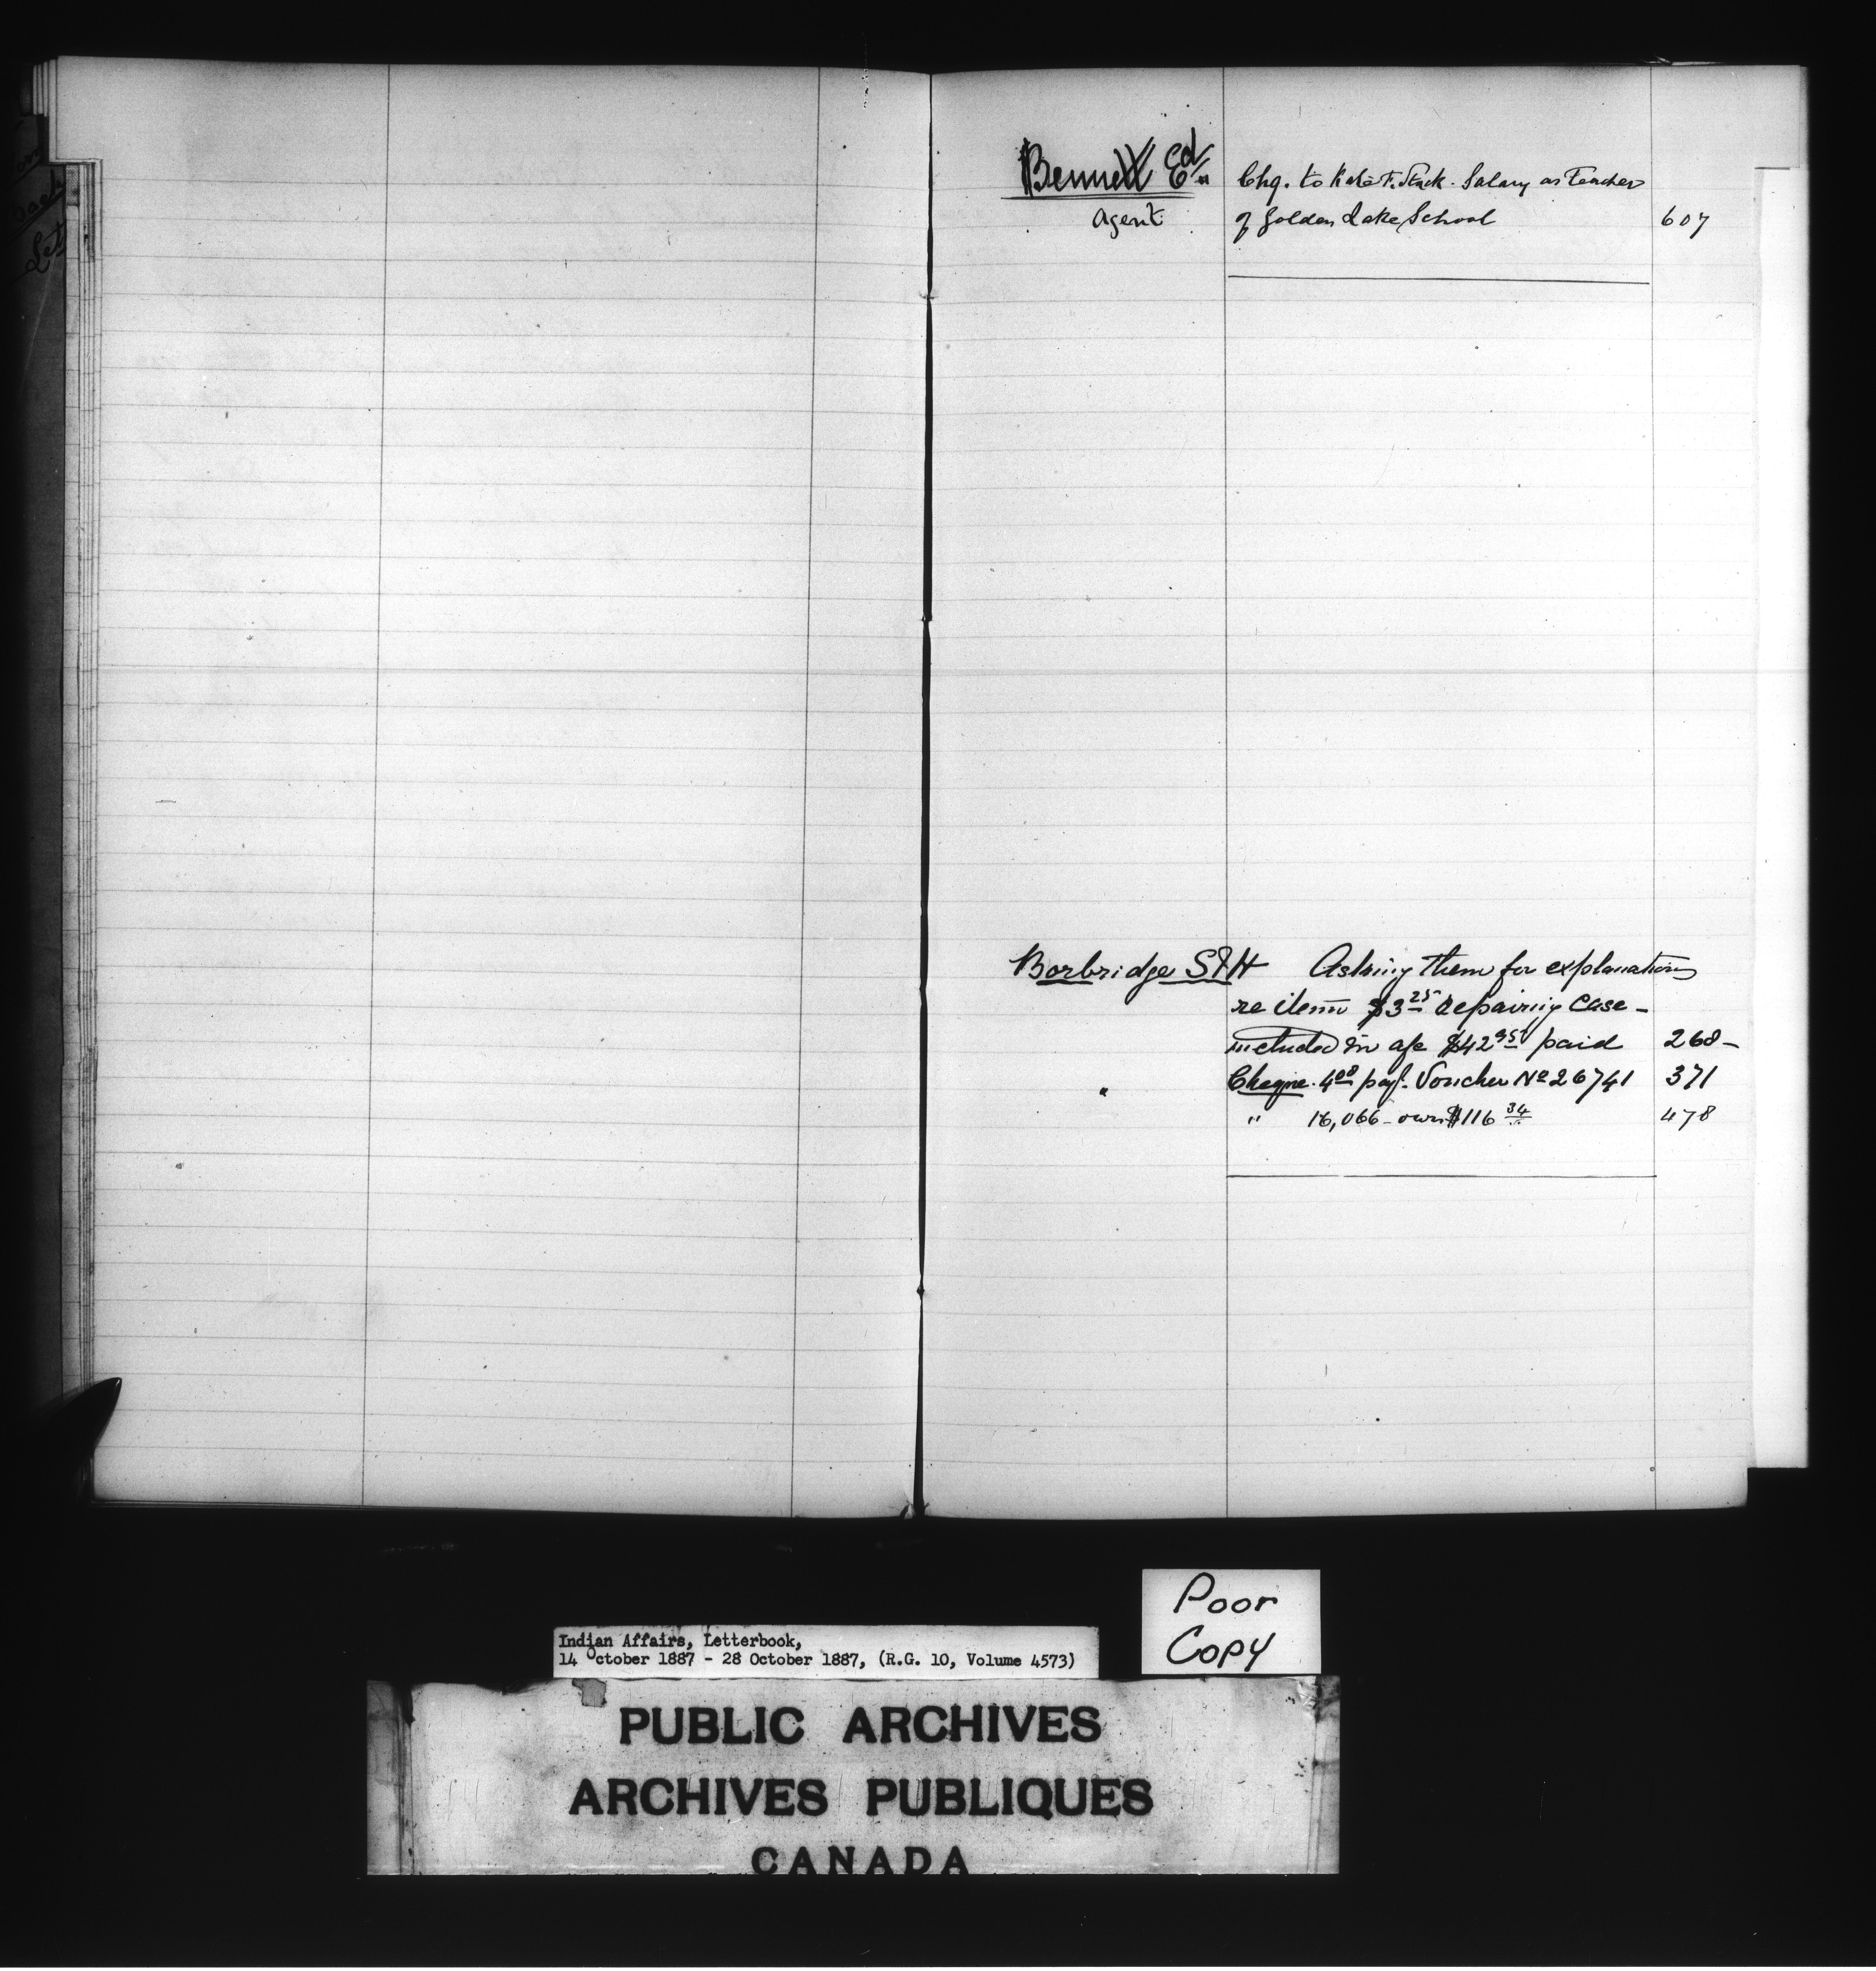 Bennett Ed.
Agent
Chq. to Kate F. Stack. Salary as Teacher
of Golden Lake School 607
Borbridge S & H Asking them for explanations
re item $3 25 repairing case -
included in a/c $42 95 paid 268 -
" Cheque. 4 08 pay. Voucher No 26741 371
" 16,066 - own $116 34 478
Poor
Copy
Indian Affairs, Letterbook,
14 October 1887 - 28 October 1887, (R.G. 10, Volume 4573)
PUBLIC ARCHIVES
ARCHIVES PUBLIQUES
CANADA